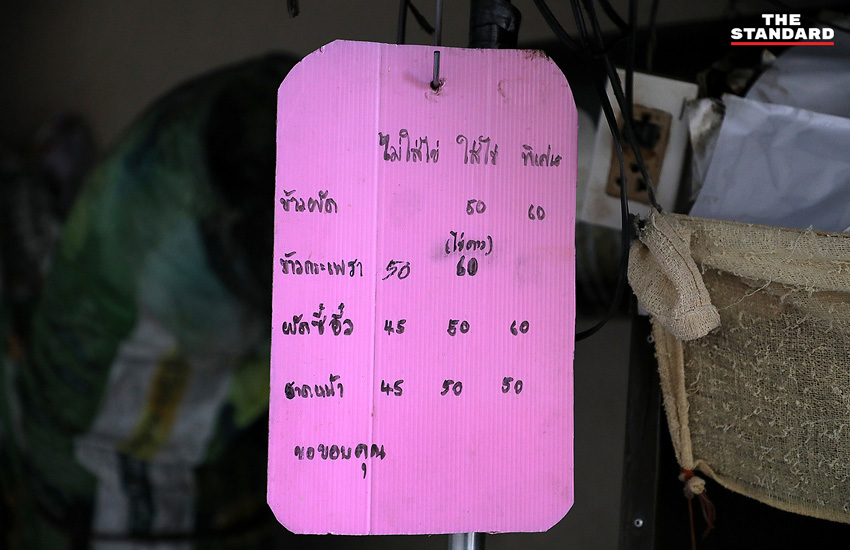 THE
STANDARD
ไม่ใส่ไข่ ใส่ไข่ พิเศษ
ข้าวผัด 50 60
(ไข่ดาว)
ข้าวกะเพรา 50 60
ผัดซีอิ๊ว 45 50 60
ราดหน้า 45 50 50
ขอขอบคุณ